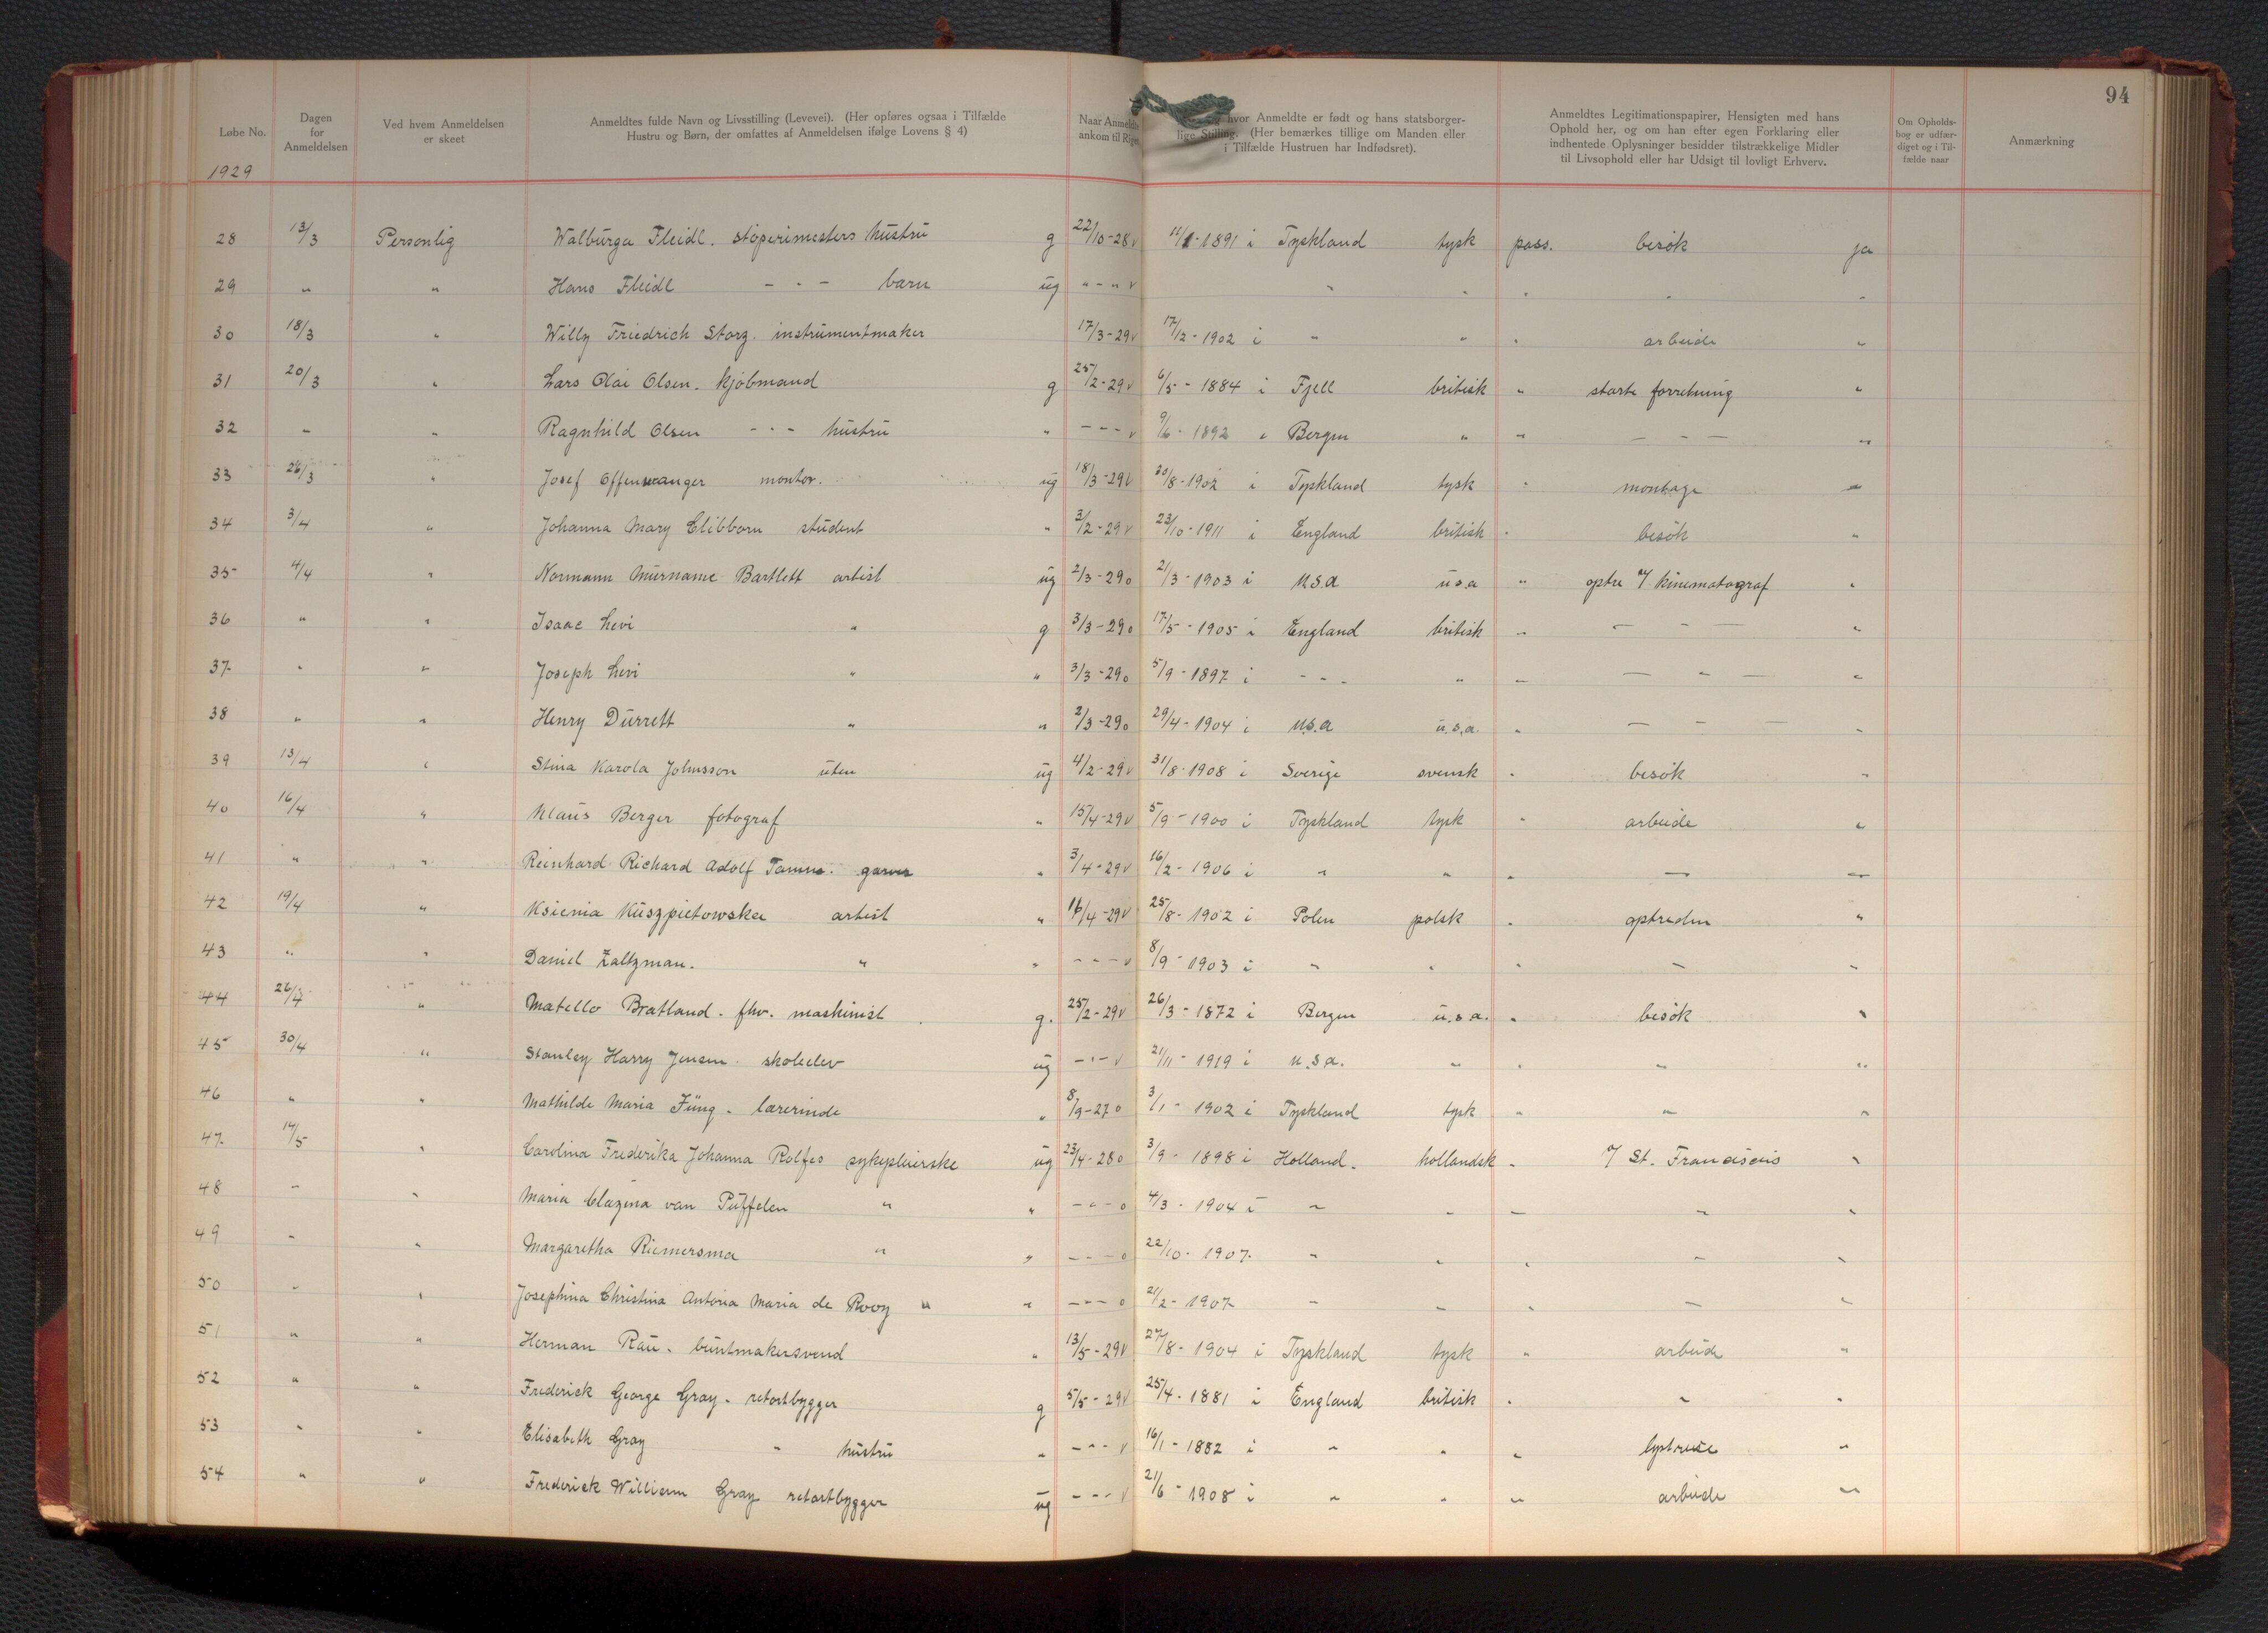 94
Løbe No. Dagen for Anmeldelsen Ved hvem Anmeldelsen er skeet Anmeldtes fulde Navn og Livsstilling (Levevei). (Her opføres ogsaa i Tilfælde Hustru og Børn, der omfattes af Anmeldelsen ifølge Lovens § 4) Naar Anmeldte ankom til Riget hvor Anmeldte er født og hans statsborgerlige Stilling. (Her bemærkes tillige om Manden eller i Tilfælde Hustruen har Indfødsret). Anmeldtes Legitimationspapirer, Hensigten med hans Ophold her, og om han efter egen Forklaring eller indhentede Oplysninger besidder tilstrækkelige Midler til Livsophold eller har Udsigt til lovligt Erhverv. Om Opholdsbog er udfærdiget og i Tilfælde naar Anmærkning
1929
28 13/3 Personlig Walburga Fleidl. støperimesters hustru g 22/10-28 v 11/1-1891 i Tyskland tysk pass. besøk ja
29 " " Hans Fleidl - - - barn ug " - " v " " " " "
30 18/3 " Willy Friedrich Storz. instrumentmaker 17/3-29 v 17/12-1902 i " " " arbeide "
31 20/3 " Lars Olai Olsen. kjøbmand g 25/2-29 v 6/5-1884 i Fjell britisk " starte forretning "
32 " " Ragnhild Olsen - - - hustru " - - - v 9/6-1892 " Bergen " " - - - "
33 26/3 " Josef Offenwanger montør. ug 18/3-29 v 20/8-1902 i Tyskland tysk " montage "
34 3/4 " Johanna Mary Clibborn student " 3/2-29 v 23/10-1911 i England britisk " besøk "
35 4/4 " Normann Murname Bartlett artist ug 2/3-29 o 21/3-1903 i U.S.a u.s.a " optr. v/ kinematograf "
36 " " Isaac Levi " g 3/3-29 o 17/5-1905 i England britisk " - - - "
37 " " Joseph Levi " " 3/3-29 o 5/9-1897 i - - - " " - - - "
38 " " Henry Durrett " " 2/3-29 o 29/4-1904 i U.S.a u.s.a. " - - - "
39 13/4 " Stina Karola Johnsson uten ug 4/2-29 v 31/8-1908 i Sverige svensk " besøk "
40 16/4 " Klaus Berger fotograf " 15/4-29 v 5/9-1900 i Tyskland tysk " arbeide "
41 " " Reinhard Richard Adolf Tamme. garver " 3/4-29 v 16/2-1906 i " " " - "
42 19/4 " Ksienia Kuszpietowska artist " 16/4-29 v 25/8-1902 i Polen polsk " optræden "
43 " " Daniel Zaltzman. " " - - - v 8/9-1903 i " " " - "
44 26/4 " Matello Bratland. fhv. maskinist g. 25/2-29 v 26/3-1872 i Bergen u.s.a. " besøk "
45 30/4 " Stanley Harry Jensen. skoleelev ug - - - v 21/11-1919 i U.S.a. " " " "
46 " " Mathilde Maria Füng. lærerinde " 8/9-27 o 3/1-1902 i Tyskland tysk " " "
47 14/5 " Carolina Frederika Johanna Rolfes sykepleierske ug 23/4-28 o 3/9-1898 i Holland. hollandsk " v/ St. Franciscus "
48 " " Maria Clazina van Puffelen " " - - - o 4/3-1904 i " " " " "
49 " " Margaretha Riemersma " " - - - o 22/10-1907. " " " " "
50 " " Josephina Christina Antonia Maria de Rooy " " - - - o 21/2-1907 " " " " "
51 " " Herman Rau. buntmakersvend " 13/5-29 v 27/8-1904 i Tyskland tysk " arbeide "
52 " " Frederick George Gray. retortbygger g 5/5-29 v 25/4-1881 i England britisk " " "
53 " " Elisabeth Gray " hustru " - - - v 16/1-1882 i " " " lystreise "
54 " " Frederick William Gray retortbygger ug - - - v 21/6-1908 i " " " arbeide "